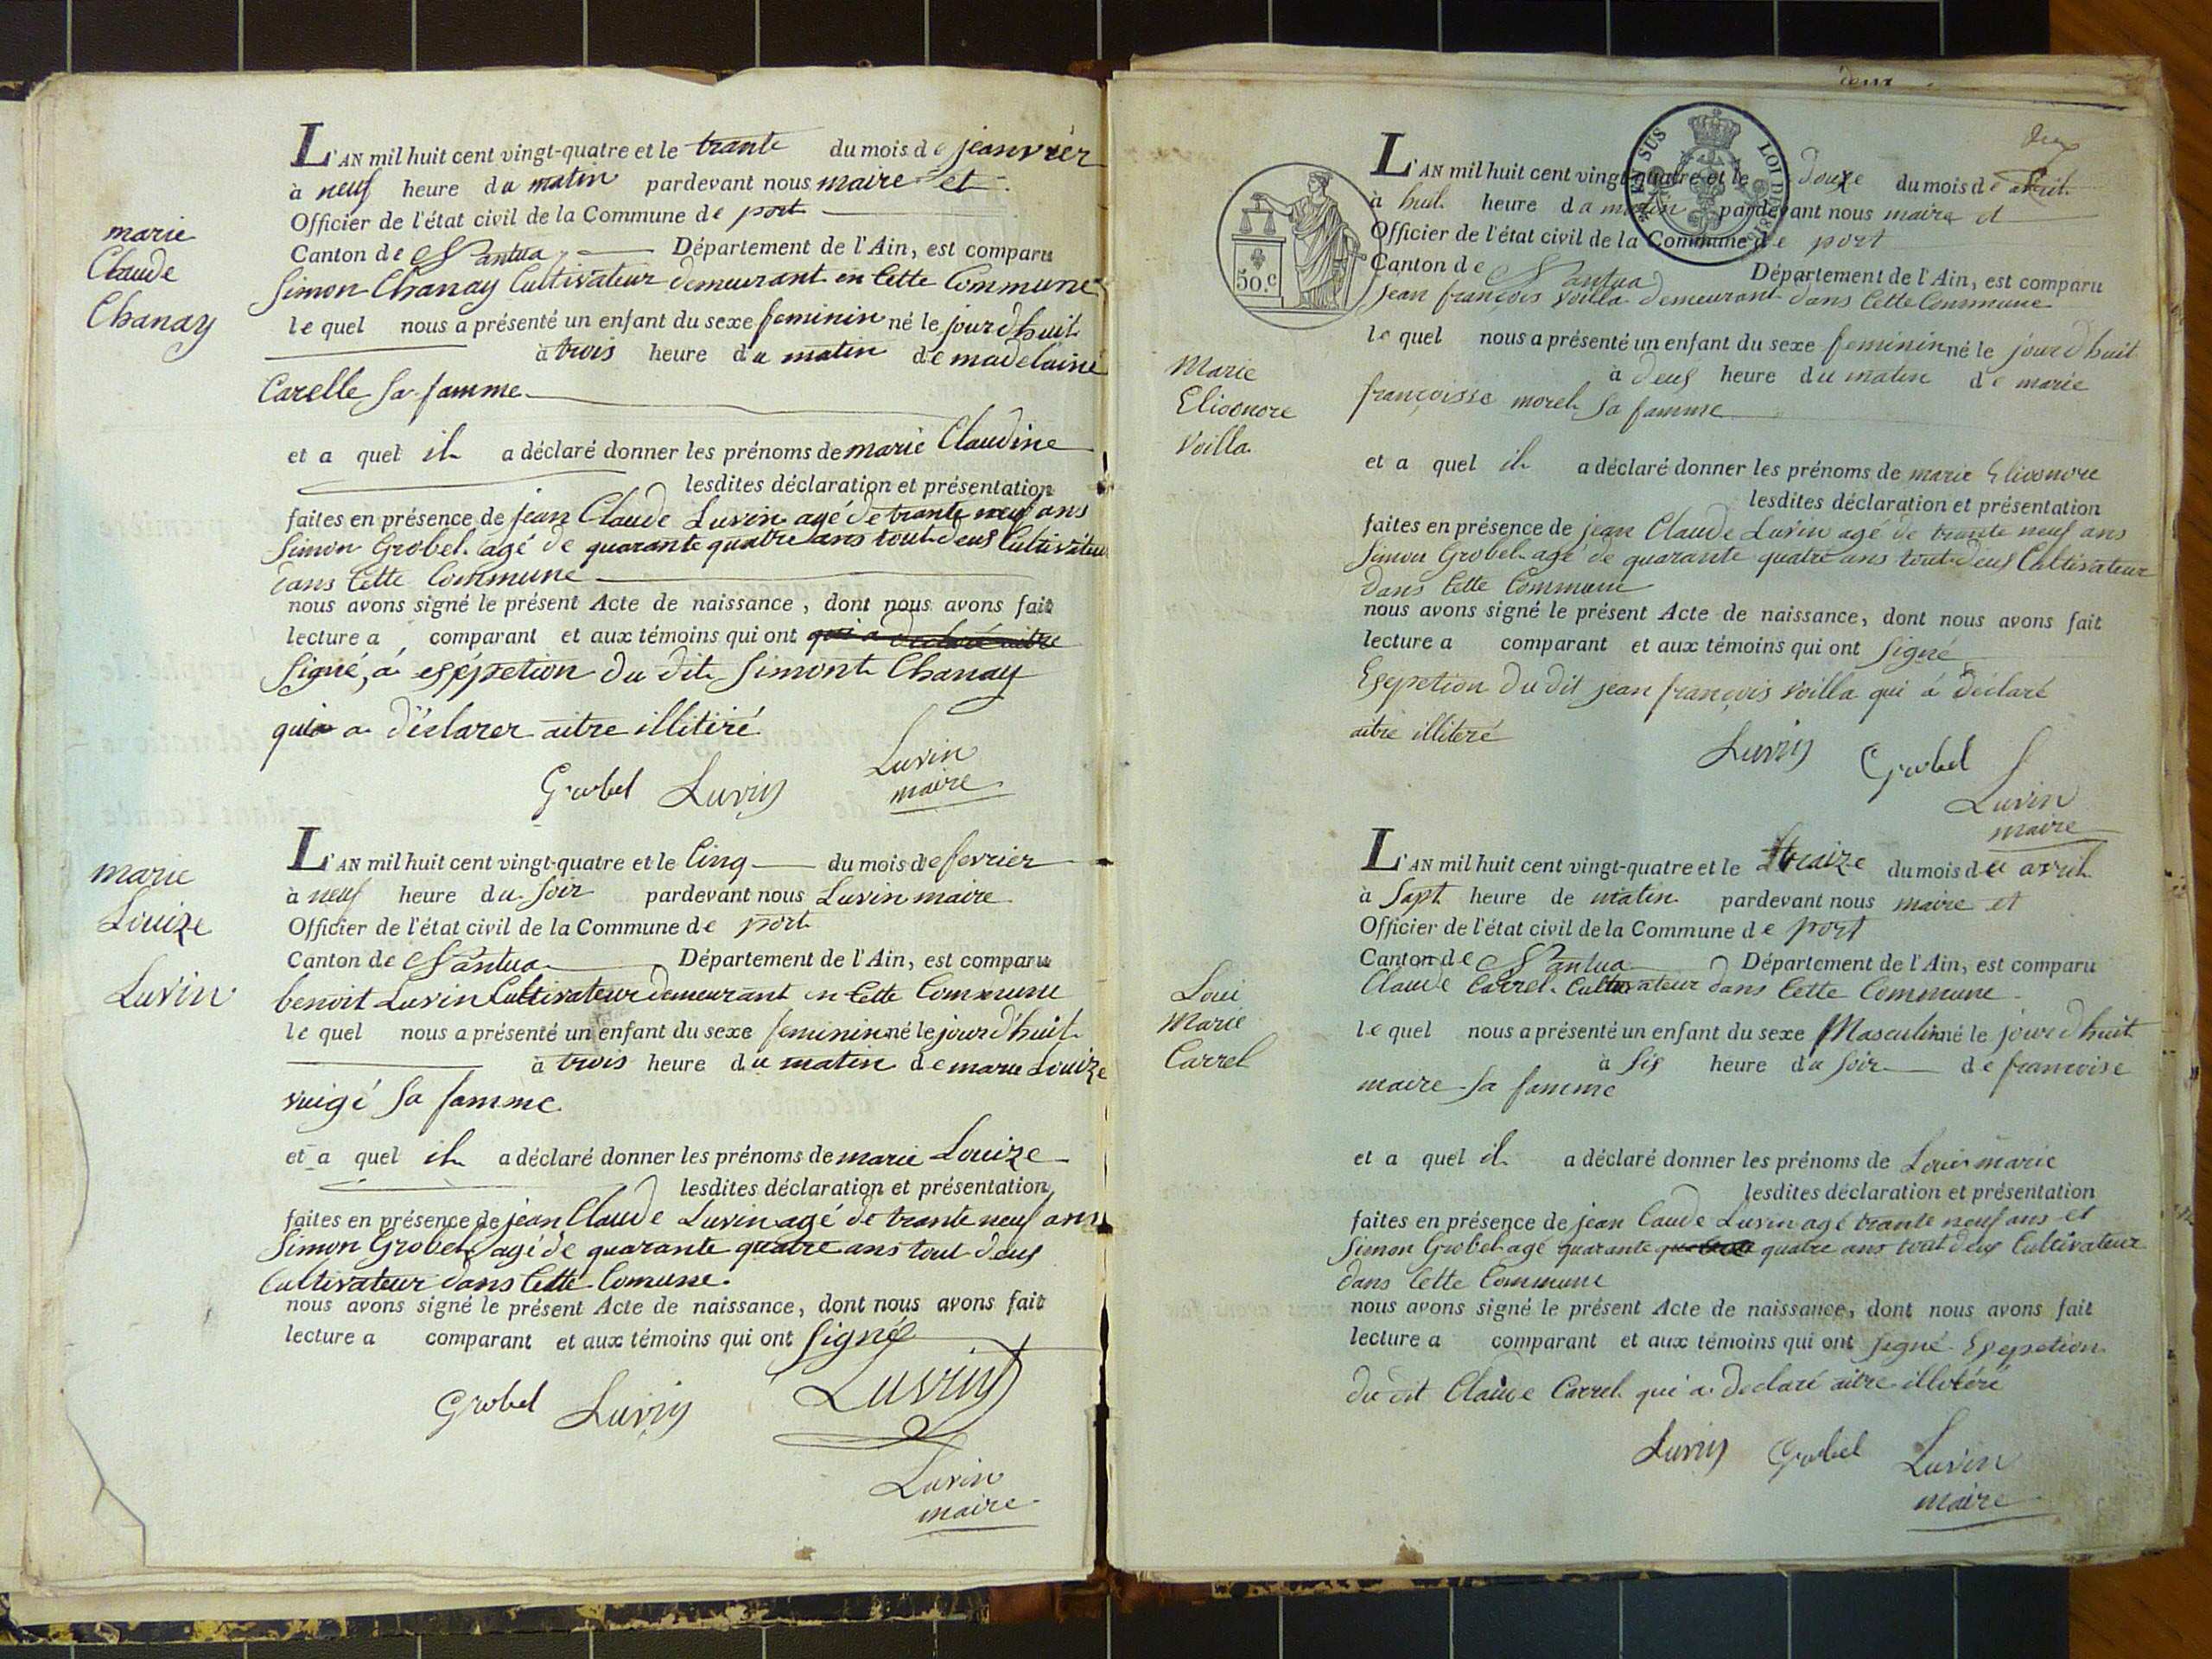 marie
Claude
Chanay
L'AN mil huit cent vingt-quatre et le trante du mois de jeanvrier
à neuf heure du matin pardevant nous maire et
Officier de l'état civil de la Commune de port
Canton de Nantua Département de l'Ain, est comparu
Simon Chanay Cultivateur demeurant en Cette Commune
le quel nous a présenté un enfant du sexe feminin né le jourdhuit
à trois heure du matin de madelaine
Carelle Sa famme
et a quel il a déclaré donner les prénoms de marie Claudine
lesdites déclaration et présentation
faites en présence de jean Claude Luvin agé de trante neuf ans
Simon Grobel agé de quarante quatre ans tout deus Cultivateur
dans Cette Commune
nous avons signé le présent Acte de naissance, dont nous avons fait
lecture a comparant et aux témoins qui ont qui a declaré aitre
Signé, à esépsetion du dit Simont Chanay
qui a déclarer aitre illitiré
Grobel Luvin Luvin
maire
marie
Louize
Luvin
L'AN mil huit cent vingt-quatre et le Cinq du mois de fevrier
à neuf heure du Soir pardevant nous Luvin maire
Officier de l'état civil de la Commune de port
Canton de Nantua Département de l'Ain, est comparu
benoit Luvin Cultivateur demeurant en Cette Commune
le quel nous a présenté un enfant du sexe feminin né le jourd'huit
à trois heure du matin de marie Louize
vuigé Sa famme
et a quel il a déclaré donner les prénoms de marie Louize
lesdites déclaration et présentation
faites en présence de jean Claude Luvin agé de trante neuf ans
Simon Grobel agé de quarante quatre ans tout deus
Cultivateur dans Cette Comune.
nous avons signé le présent Acte de naissance, dont nous avons fait
lecture a comparant et aux témoins qui ont Signé
Grobel Luvin Luvin
Luvin
maire
deux
50.c
SUS LOI DE
L'AN mil huit cent vingt-quatre et le douze du mois de avril
à huit heure du matin pardevant nous maire et
Officier de l'état civil de la Commune de port
Canton de Nantua Département de l'Ain, est comparu
jean françois Voilla demeurant dans Cette Commune
le quel nous a présenté un enfant du sexe feminin né le jourdhuit
à deus heure du matin de marie
françoisse morel Sa famme
Marie
Elioonore
Voilla
et a quel il a déclaré donner les prénoms de marie Elioonore
lesdites déclaration et présentation
faites en présence de jean Claude Luvin agé de trante neuf ans
Simon Grobel agé de quarante quatre ans tout deus Cultivateur
dans Cette Commune
nous avons signé le présent Acte de naissance, dont nous avons fait
lecture a comparant et aux témoins qui ont Signé
Esepsetion du dit jean françois Voilla qui a déclaré
aitre illitéré
Luvin Grobel
Luvin
maire
L'AN mil huit cent vingt-quatre et le traize du mois de avril
à Sapt heure de matin pardevant nous maire et
Officier de l'état civil de la Commune de port
Canton de Nantua Département de l'Ain, est comparu
Claude Carrel Cultivateur dans Cette Commune
le quel nous a présenté un enfant du sexe Masculin né le jourdhuit
à Sis heure du Soir de francoise
maire Sa famme
Loui
Marie
Carrel
et a quel il a déclaré donner les prénoms de Loui marie
lesdites déclaration et présentation
faites en présence de jean Caude Luvin agé trante neuf ans et
Simon Grobel agé quarante quatre ans tout deus Cultivateur
dans Cette Commune
nous avons signé le présent Acte de naissance, dont nous avons fait
lecture a comparant et aux témoins qui ont Signé Esepsetion
du dit Claude Carrel qui a declaré aitre illitéré
Luvin Grobel Luvin
maire